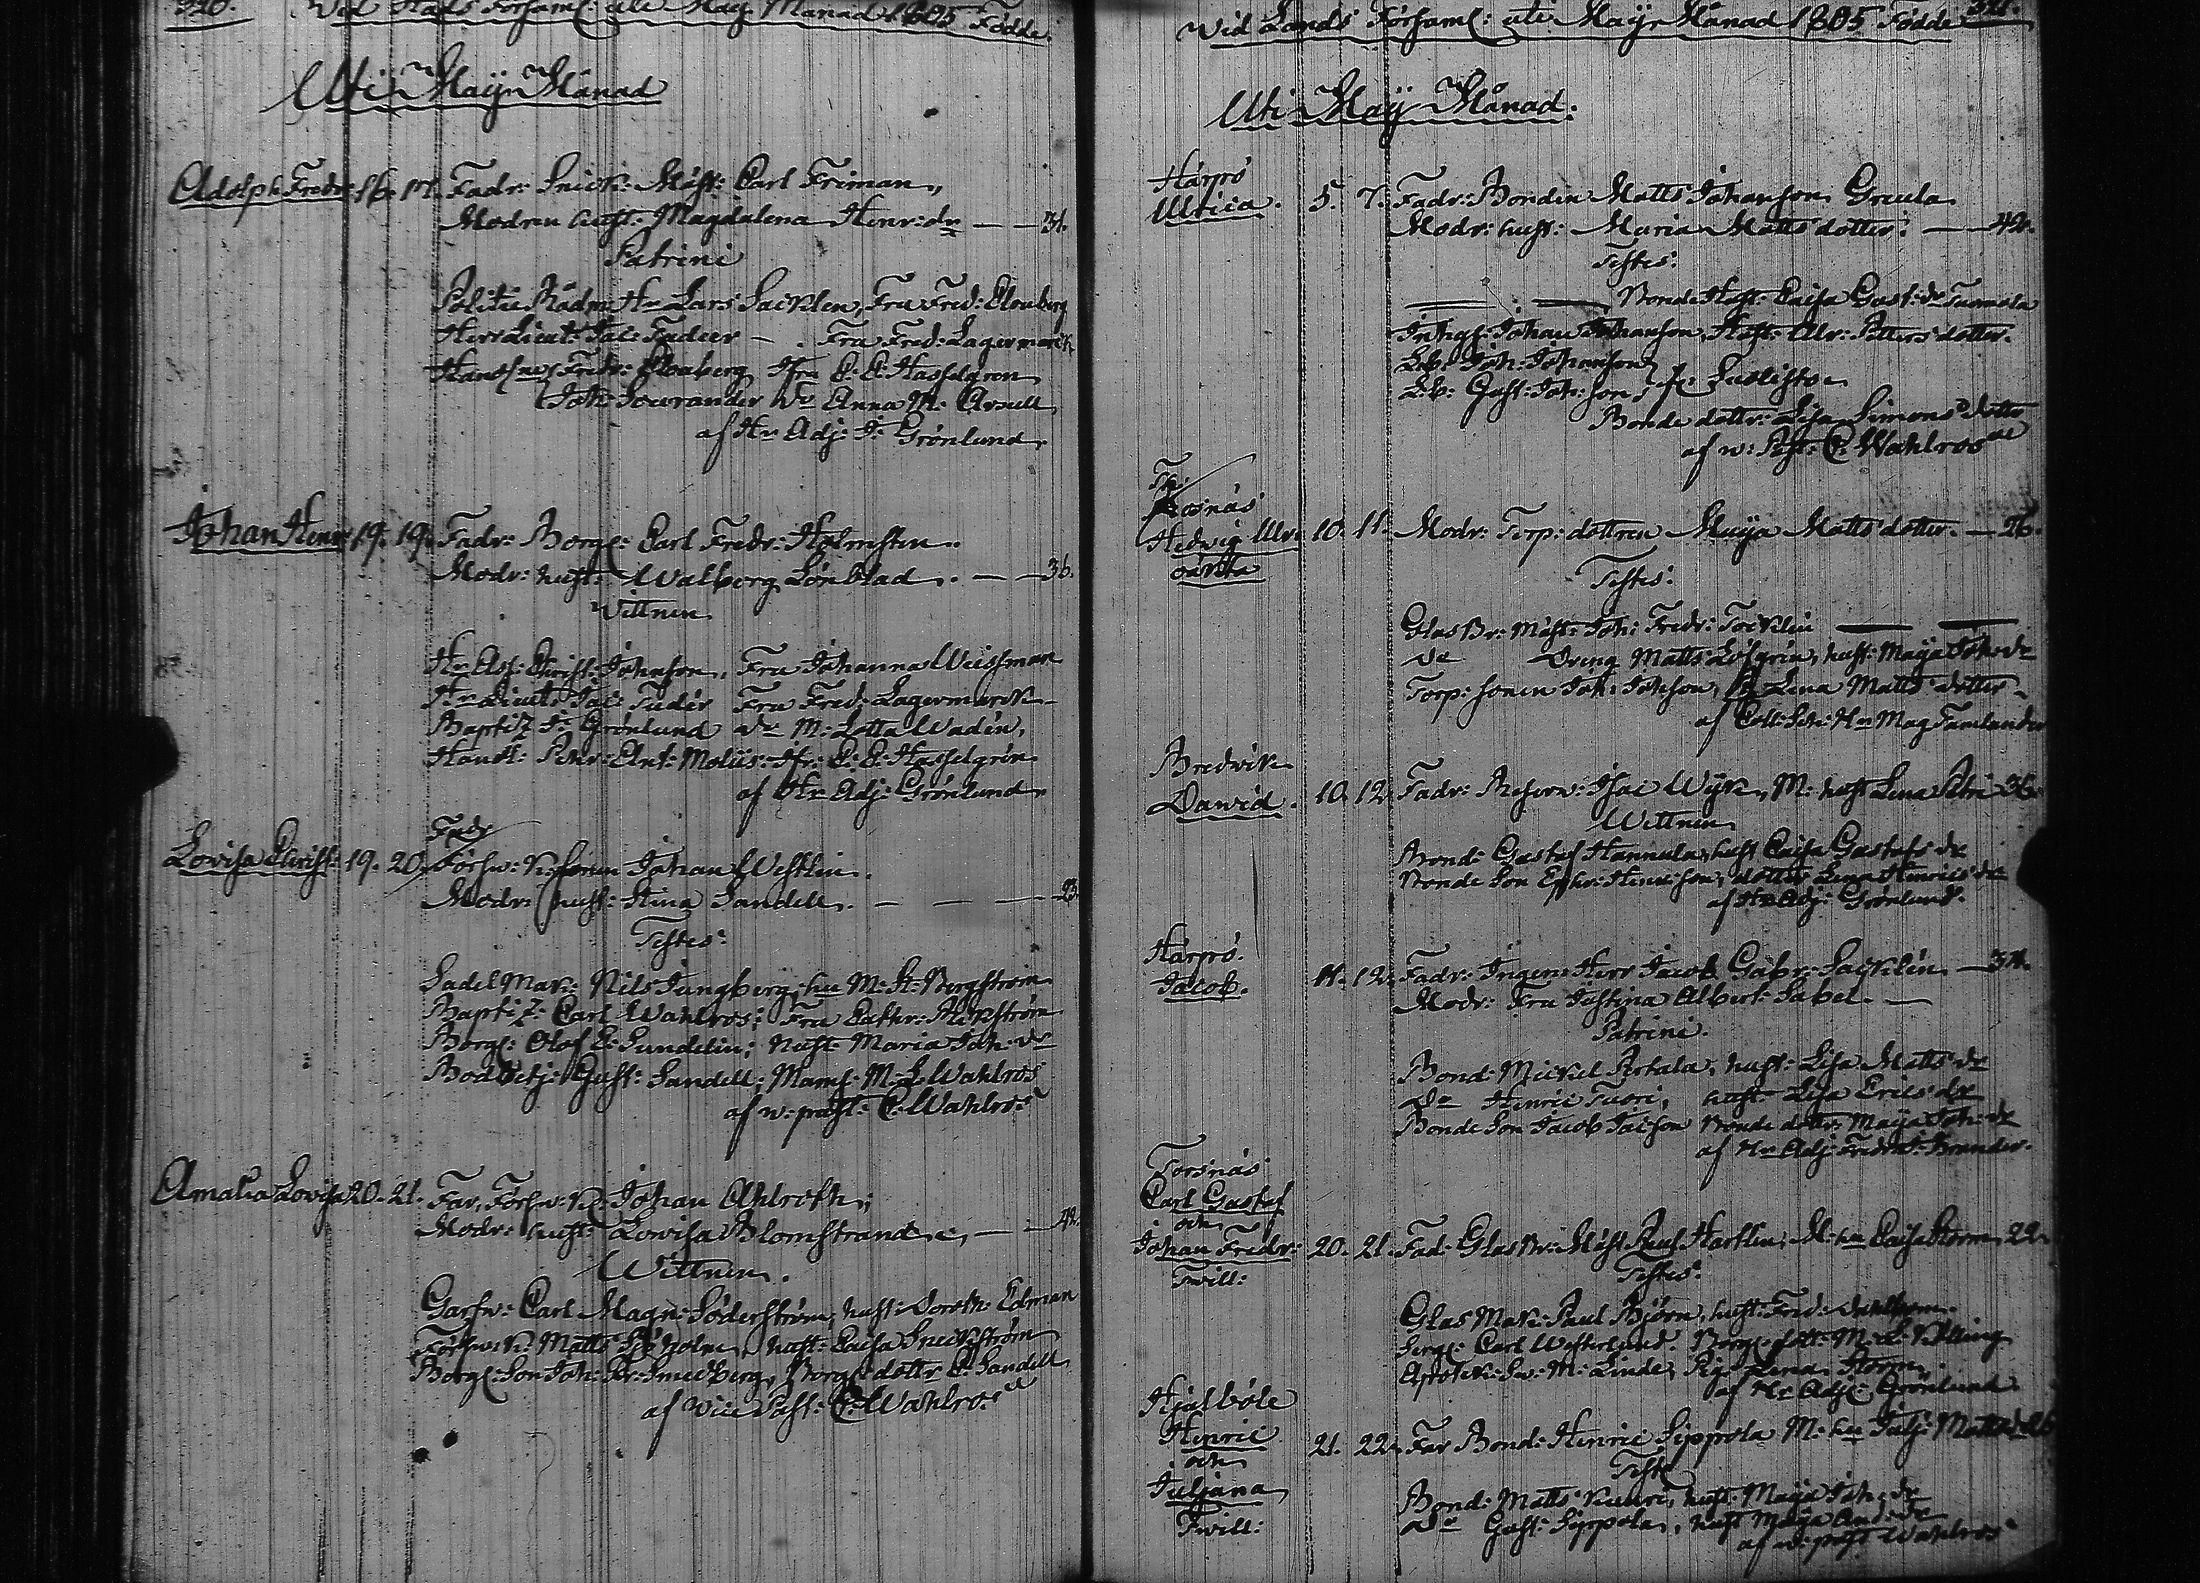 320. Wid Stads Församl: uti May Månad 1805 Födde.
Uti May Månad
Adolph Fredr: 16. 17. Fadr: Snick: Mäst: Carl Friman,
Modren hust: Magdalena Henr: dr — — 31.
Patrini
Politie Rådm Hr Lars Sacklen, Fru Fred: Clouberg
Herr Lieut: Jac: Tudeer — . Fru Fred: Lagermarck
Fredr: Clouberg Jfru C: C: Hasselgren
Joh: Anna M: Arnell
af Hr Adj: J: Grönlund
Johan Henr: 19. 19. Fadr: Borg: Carl Fredr: Holmsten
Modr: hust: Walborg Lönblad. — — 36.
Wittnen
Hr Ass: Christ: Johnson, Fru Johanna Weissman
Hr Lieut: Jac: Tudér Fru Fred: Lagermarck
Baptiz J: Grönlund dr M: Lotta Wadén,
Handl: Petr: Ant: Moliis: Jfr: C: C: Hasselgrén
af Hr Adj: Grönlund
Fadr
Lovisa Christ: 19. 20. Försw: K: Sören Johan Westlin.
Modr: hust: Stina Sandell. — — — 23.
Testes:
Sadel Mak: Nils Jungberg, hu M: St: Bergström
Baptiz: Carl Wahlros; Fru Cathr: Åkström
Borg: Olof E: Sundelin; hust Maria Joh: dr
Bod Betj: Gust: Sandell; Mams: M: L: Wahlros
af w: past: C: Wahlros
Amalia Lovisa 20. 21. Far, Försw: K: Johan Ahlroth;
Modr: hust: Lowisa Blomstrand; — —
Wittnen.
Garfw: Carl Magn: Söderström, hust: Doroth: Edman
Försw: K: Matts Sjöholm, hust: Caisa Sneckström
Borg: Son Joh: Fr: Smedberg, Borg: dottr C: Sandell
af Vice Past: C: Wahlros
Wid Lands Församl: uti May Månad 1805 Födde 321.
Uti May Månad.
Härpö
Ulrica. 5. 7. Fadr: Bonden Matts Johanson Greula
Modr: hust: Maria Matts dotter. — 42.
Testes:
— : — Bonde Hust: Caisa Gust: dr Tuomola
Inhys: Johan Johanson, Hust: Ulr: Petters dotter.
Joh: Johanson
Gust: Joh: son,
Bonde dottr: Lisa Simons dotter
af w: Past: C: Wahlroos
Torsnäs
Hedwig Ulr: 10. 11. Modr: Torp: dottren Maya Matts dotter. — 26.
oäkta
Testes:
Glas Br: Mäst: Joh: Fredr: Tocklin — —
dr Dreng Matts Löfgrén, hust: Maya Joh: dr
Torp: sonen Joh: Johson, Lena Matts dotter
af Coll: Sch: Hr Mag Tamlander
Bredwik
Dawid. 10. 12. Fadr: Reserv: Isac Wijk, M: hust Lena Petri 36.
Wittnen
Bond: Gustaf Hannula, hust Caisa Gustafs dr
Bonde Son Ephr: Henricson, dotter Lena Henrics dr
af Hr Adj: Grönlund.
Härpö.
Jacob. 11. 12. Fadr: Ingen: Herr Jacob Gabr: Sacklén. —
Modr: Fru Justina Albert: Sabel. —
Patrini.
Bond: Mickel Pertala, hust: Lisa Matts dr
dr Henric Tuori, hust Lisa Erics dr
Bonde Son Jacob Jacson Bonde dottr Maya Joh: dr
af Hr Adj: Fredr: Brander.
Torsnäs
Carl Gustaf
och
Johan Fredr: 20. 21. Fad: Glas Br: Mäst Hartlin, M: hu Caisa Storm 22.
Twill:
Testes:
Glas Mak: Paul Björn, hust: Fred:
Serg: Carl Westerlund. Borg: dottr M: L: Killing
Apotek: Sw: M: Linde, Pig: Lena Storm
af Hr Adj: Grönlund.
Hjulböle
Henric 21. 22. Far Bond: Henric Sippola M: hu Julj: Matts dr 26
och
Juljana
Twill:
Testes
Bond: Matts Kuuri, hust: Maja Joh: dr
dr Gust: Sippola, hust Maja And: dr
af w: past Wahlros